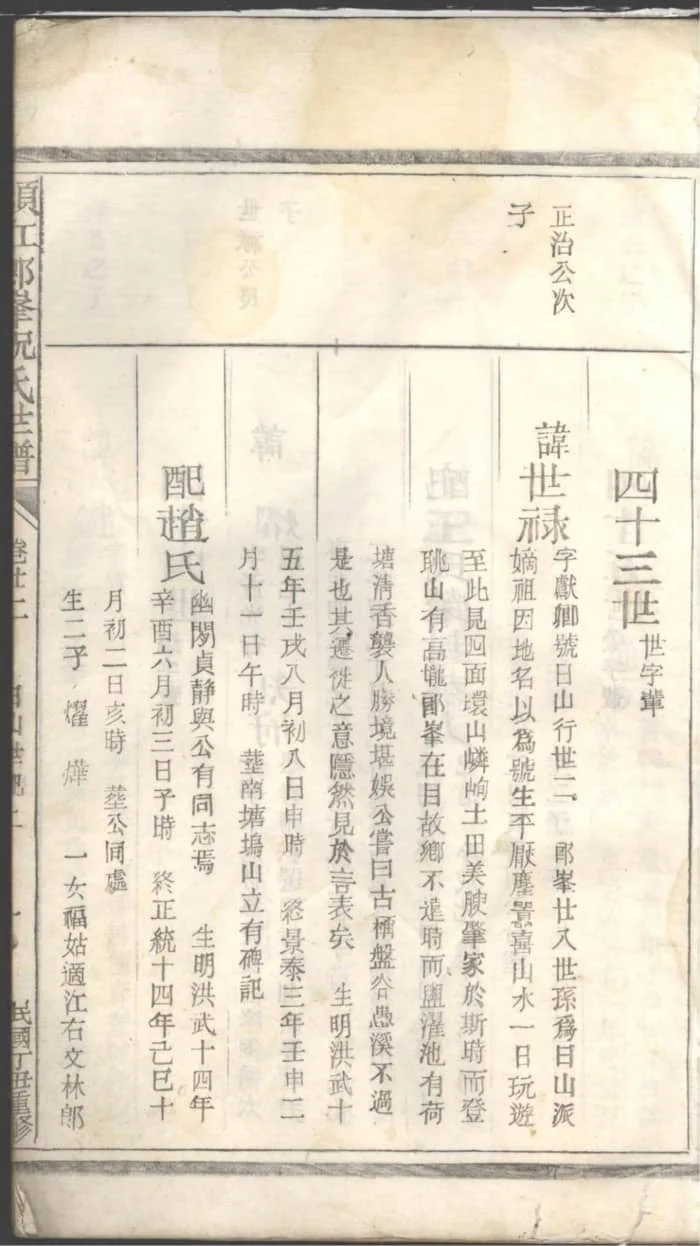 正治公次
子
四十三世 世字輩
諱世祿
字獻卿號日山行世二 郎峯廿八世孫為日山派
嫡祖因地名以為號生平厭塵囂喜山水一日玩遊
至此見四面環山嶙峋土田美腴肇家於斯時而登
眺山有高壠郎峯在目故鄉不遠時而盥濯池有荷
塘清香襲人勝境堪娛公嘗曰古稱盤谷愚溪不過
是也其遷徙之意隱然見於言表矣 生明洪武十
五年壬戌八月初八日申時 終景泰三年壬申二
月十一日午時 塟南塘塢山立有碑記
配趙氏
幽閑貞靜與公有同志焉 生明洪武十四年
辛酉六月初三日子時 終正統十四年己巳十
月初二日亥時 塟公同處
生二子 燿 燁 一女福姑適江右文林郎
須江郎峯祝氏世譜
卷廿二
日山世紀
民國丁丑重修